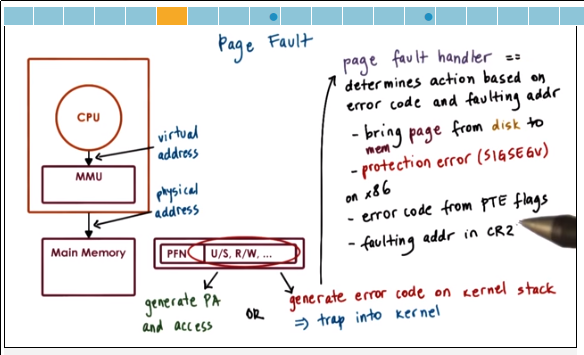 Page Fault
CPU
virtual
address
MMU
physical
address
Main Memory
PFN U/S, R/W, ...
generate PA
and access
OR
generate error code on kernel stack
⇒ trap into kernel
page fault handler ==
determines action based on
error code and faulting addr
- bring page from disk to
mem
- protection error (SIGSEGV)
on x86
- error code from PTE flags
- faulting addr in CR2